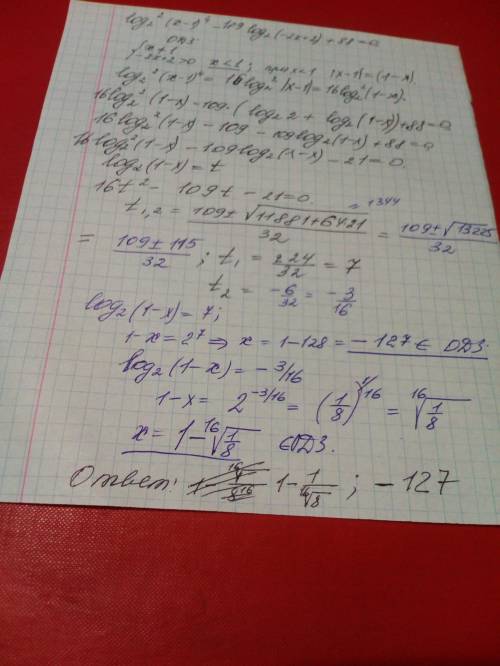 log₂²(x-1)⁴ - 109 log₂(-2x+2) + 88 = 0
ОДЗ
{x≠1
-2x+2>0 x<1; при x<1 |x-1|=(1-x).
log₂²(x-1)⁴ = 16log₂²|x-1| = 16log₂²(1-x).
16log₂²(1-x) - 109·(log₂2 + log₂(1-x)) + 88 = 0
16log₂²(1-x) - 109 - 109log₂(1-x) + 88 = 0
16log₂²(1-x) - 109log₂(1-x) - 21 = 0.
log₂(1-x) = t
16t² - 109t - 21 = 0. 1344
t₁,₂ = (109±√(11881+6421))/32 = (109±√13225)/32
= (109±115)/32 ; t₁ = 224/32 = 7
t₂ = -6/32 = -3/16
log₂(1-x) = 7;
1-x = 2⁷ ⇒ x = 1-128 = -127 ∈ ОДЗ.
log₂(1-x) = -3/16
1-x = 2^(-3/16) = (1/8)^(1/16) = ¹⁶√(1/8)
x = 1-¹⁶√(1/8) ∈ ОДЗ.
Ответ: 1-1/¹⁶√8 ; -127